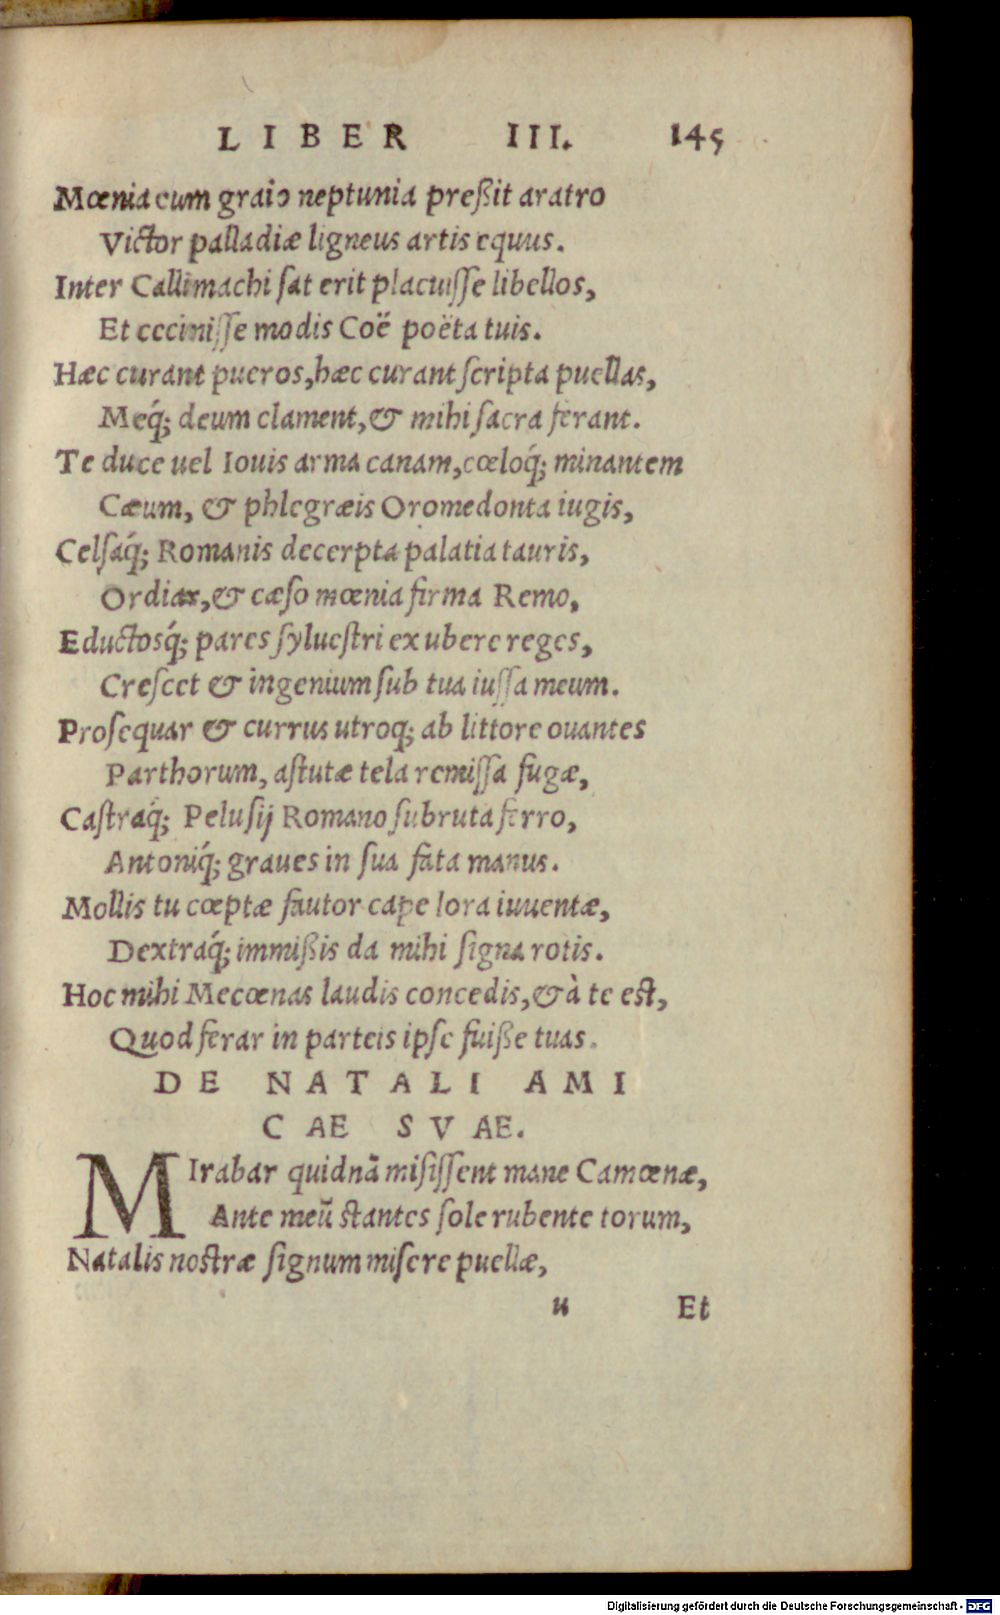 LIBER III. 145
Mœnia cum graio neptunia preßit aratro
Victor palladiæ ligneus artis equus.
Inter Callimachi sat erit placuisse libellos,
Et cecinisse modis Coë poëta tuis.
Hæc curant pueros, hæc curant scripta puellas,
Meq́; deum clament, & mihi sacra ferant.
Te duce uel Iouis arma canam, cœloq́; minantem
Cæum, & phlegræis Oromedonta iugis,
Celsaq́; Romanis decerpta palatia tauris,
Ordiar, & cæso mœnia firma Remo,
Eductosq́; pares syluestri ex ubere reges,
Crescet & ingenium sub tua iussa meum.
Prosequar & currus utroq; ab littore ouantes
Parthorum, astutæ tela remissa fugæ,
Castraq́; Pelusij Romano subruta ferro,
Antoniq́; graues in sua fata manus.
Mollis tu cœptæ fautor cape lora iuuentæ,
Dextraq́; immißis da mihi signa rotis.
Hoc mihi Mecœnas laudis concedis, & à te est,
Quod ferar in parteis ipse fuiße tuas.
DE NATALI AMI
CAE SVAE.
MIrabar quidnã misissent mane Camœnæ,
Ante meũ stantes sole rubente torum,
Natalis nostræ signum misere puellæ,
u Et
Digitalisierung gefördert durch die Deutsche Forschungsgemeinschaft - DFG